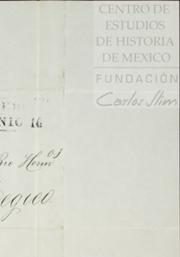 CENTRO DE
ESTUDIOS
DE HISTORIA
DE MEXICO
FUNDACIÓN
Carlos Slim
NIC 16
Herm.os